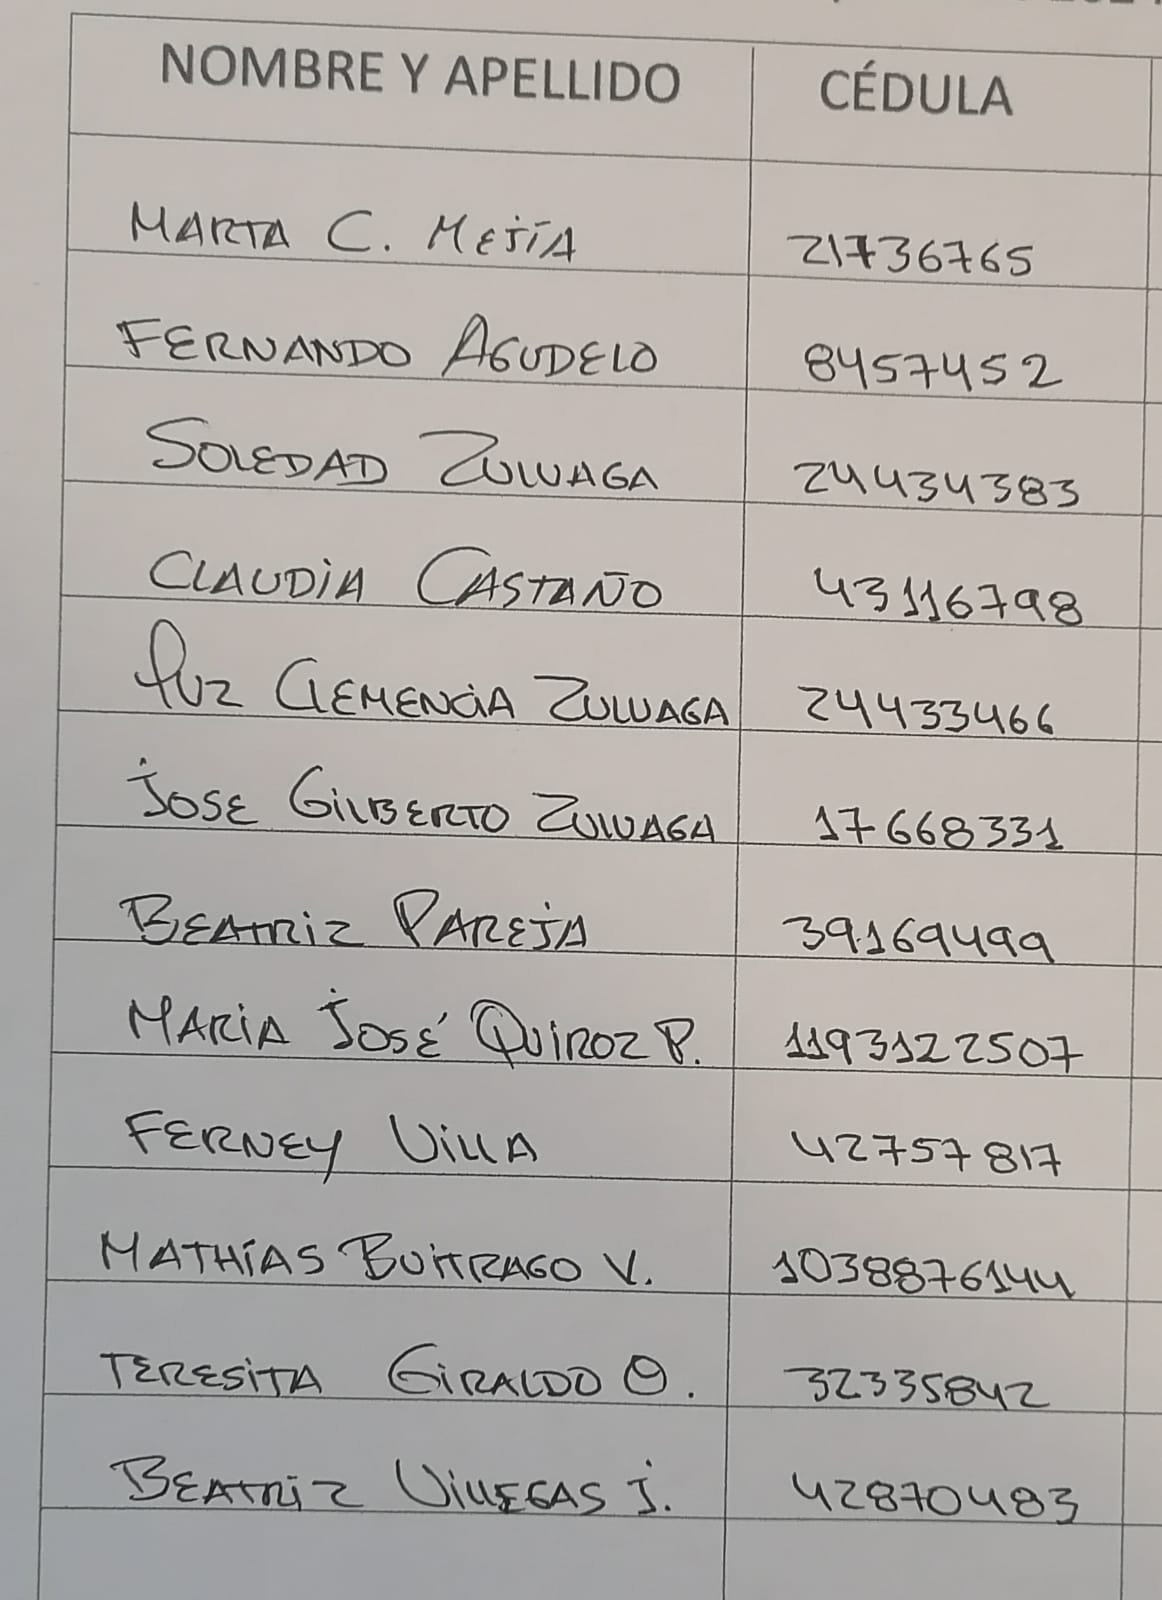 NOMBRE Y APELLIDO CÉDULA
MARTA C. MEJÍA 21736765
FERNANDO AGUDELO 8457452
SOLEDAD ZULUAGA 24434383
CLAUDIA CASTAÑO 43116798
LUZ CLEMENCIA ZULUAGA 24433466
JOSE GILBERTO ZULUAGA 17668331
BEATRIZ PAREJA 39169499
MARIA JOSÉ QUIROZ P. 1193122507
FERNEY VILLA 42757817
MATHÍAS BUITRAGO V. 1038876144
TERESITA GIRALDO O. 32335842
BEATRIZ VILLEGAS J. 42870483